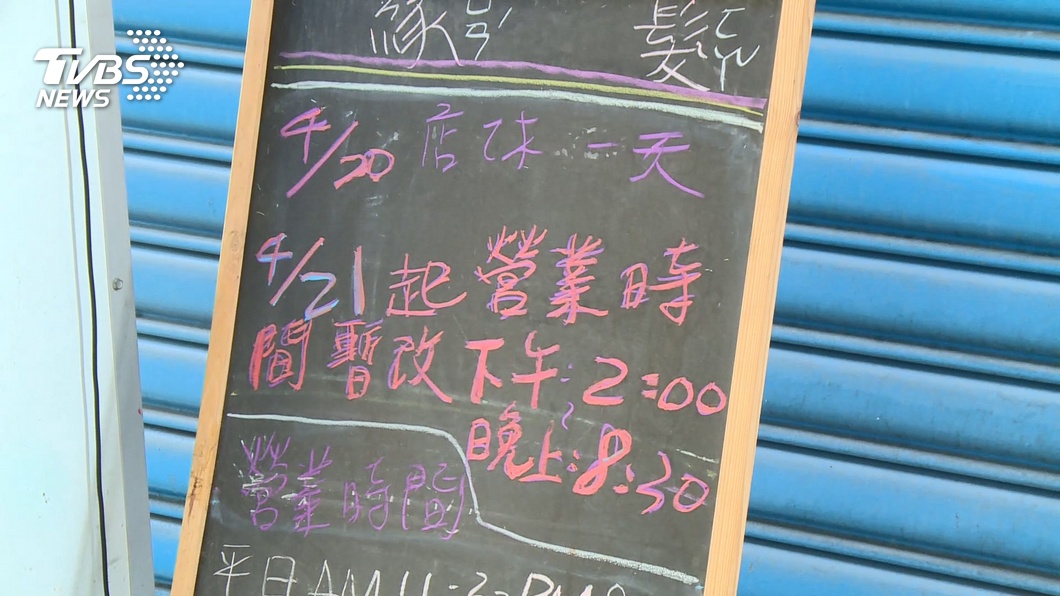 TVBS
NEWS
緣影 髮
4/20 店休 一天
4/21起營業時
間暫改下午:2:00
~
晚上:8:30
營業時間
平日AM11:30PM